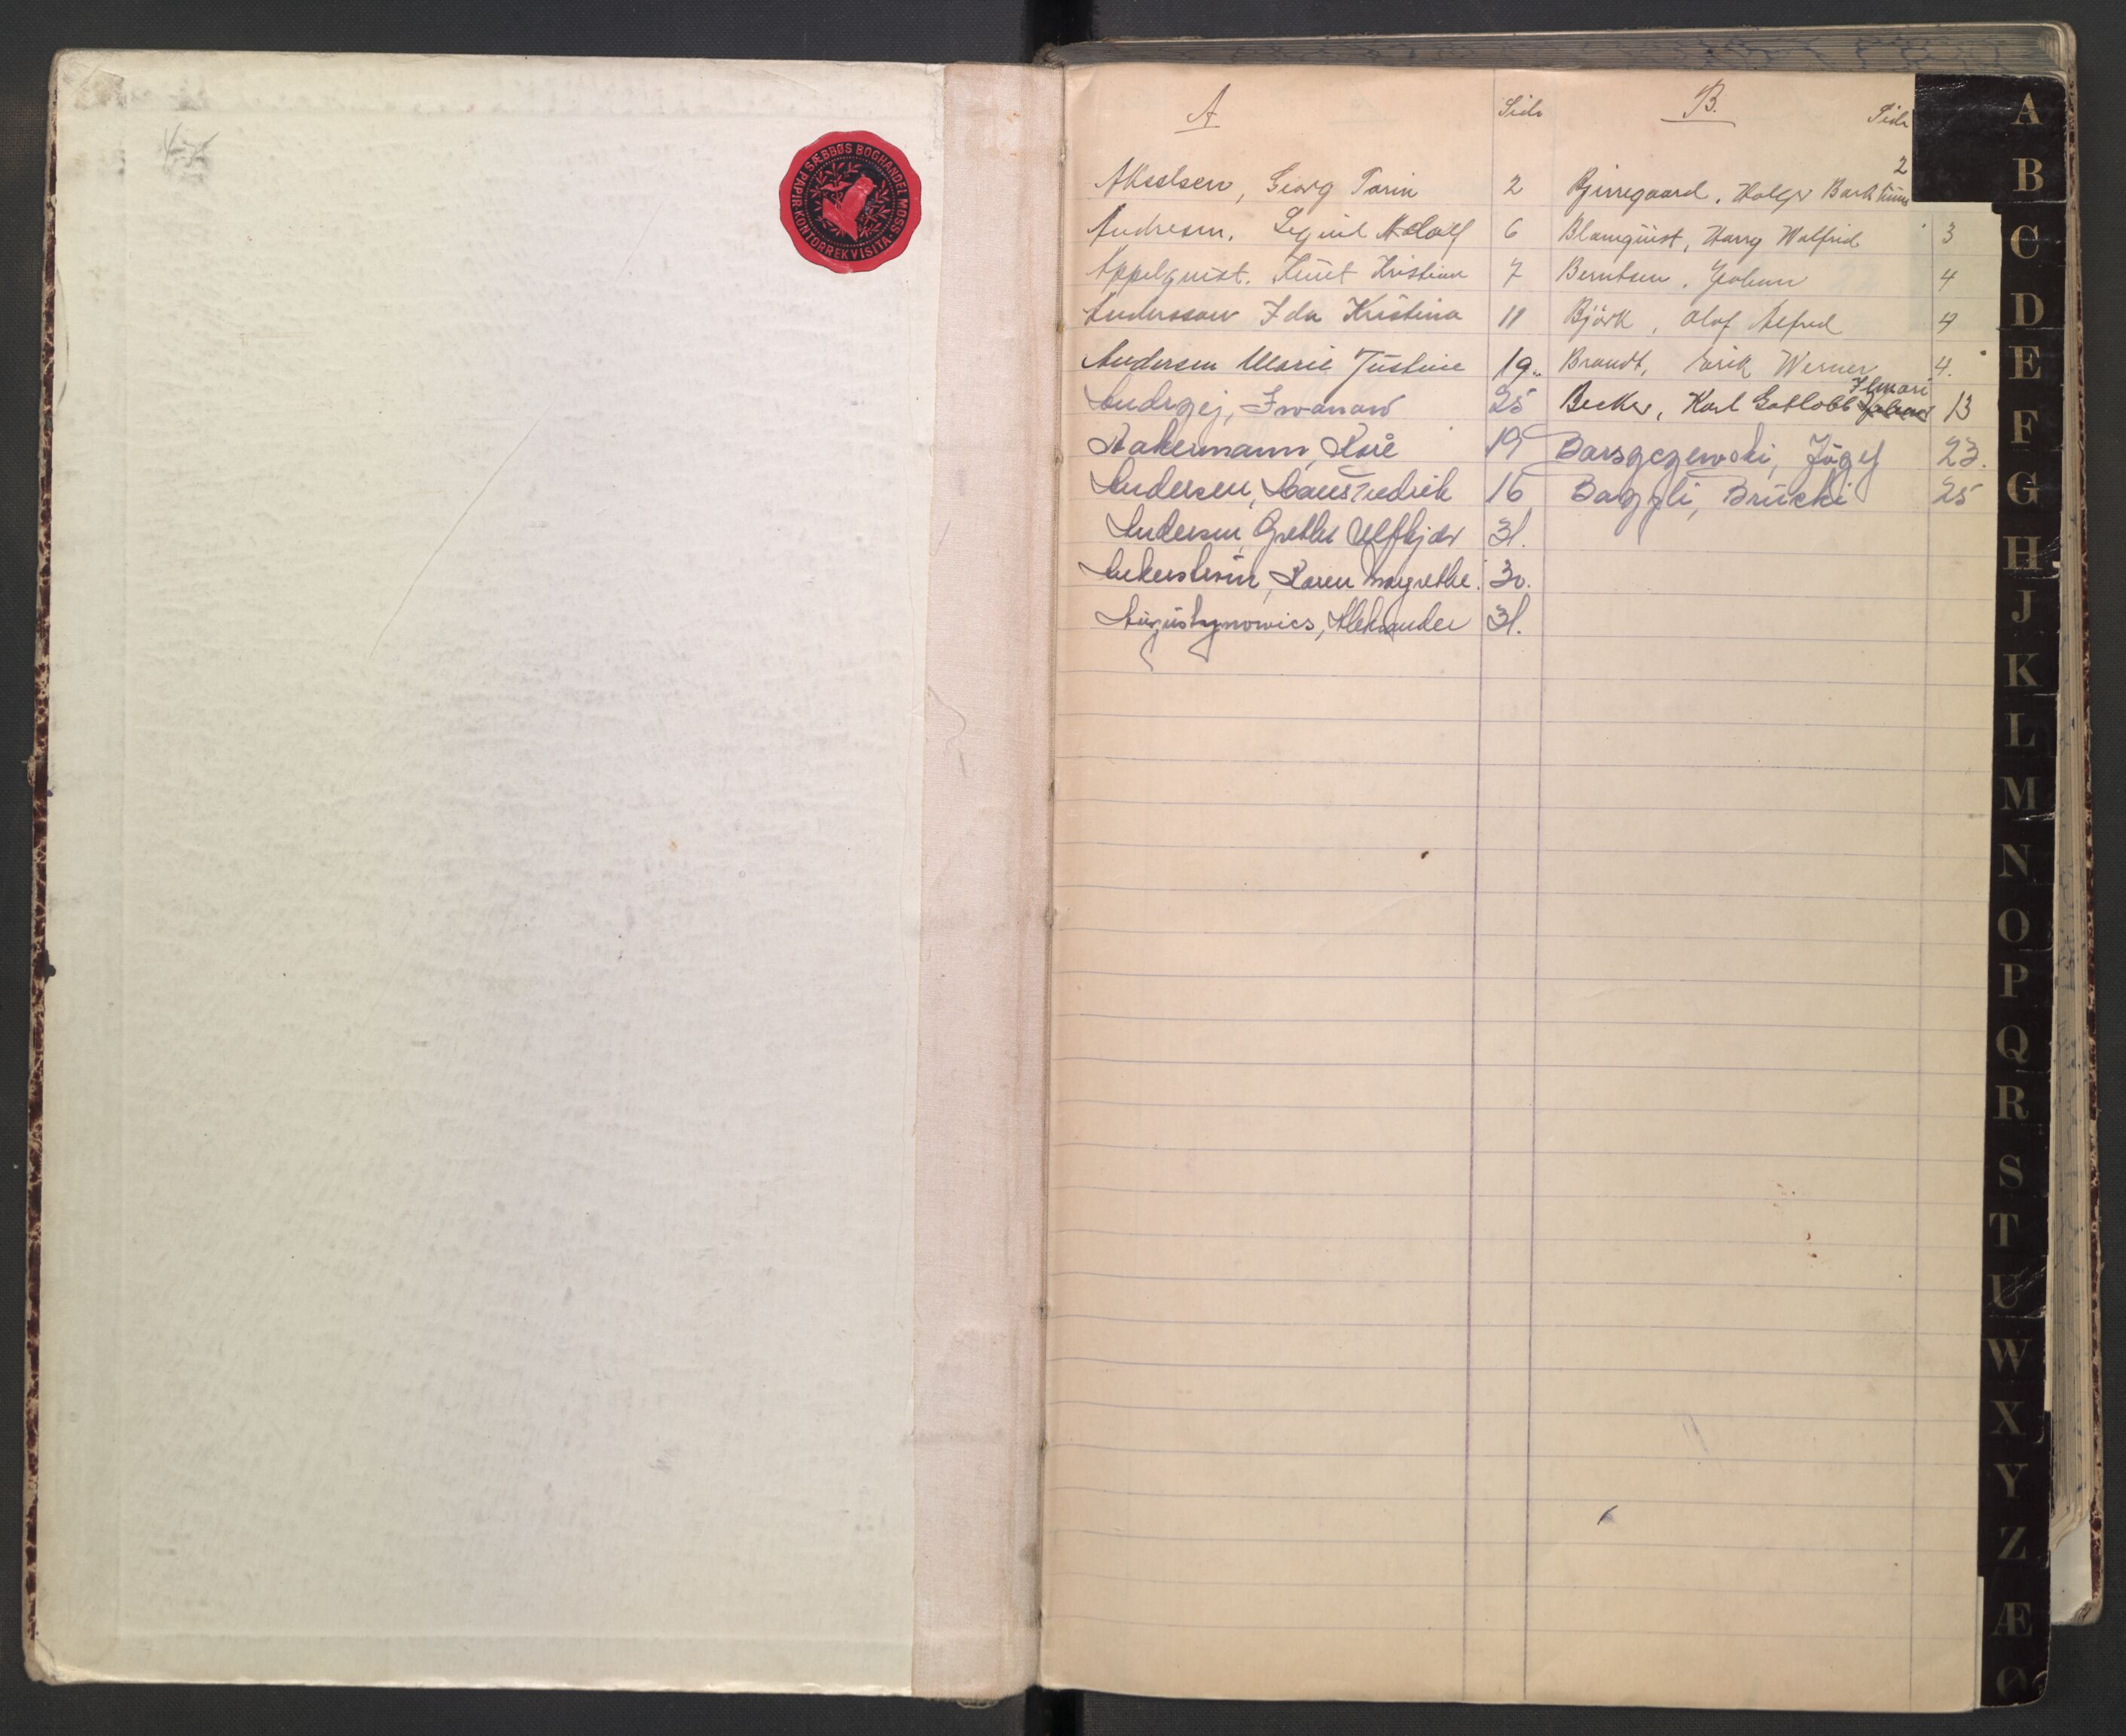 SÆBBØS BOGHANDEL MOSS · PAPIR · KONTORREKVISITA ·
A Side
Akselsen, Georg Tarin 2
Andresen, Adolf 6
Appelquist, Knut Kristian 7
Andersson Ida Kristina 11
Andersen Marie Justine 19.
Andrzej, Iwanow 25
Aakermann, Kåre 19
Andersen, Hans Fredrik 16
Andersen, Grethe Ulfkjær 31.
Ankerstern, Karen Margrethe. 30.
Augustynowics, Aleksander 31.
B. Side
Bjirregaard, Holger 2
Blomquist, Harry Walfrid 3
Berntsen, Johan 4
Björk, Olof Alfred 4
Brandt, Erik Werner 4.
Becker, Karl Gotlobb Ilmari 13
Barszczewski, Józef 23.
Bagzli, Brücki 25
A
B
C
D
E
F
G
H
J
K
L
M
N
O
P
Q
R
S
T
U
W
X
Y
Z
Æ
Ø